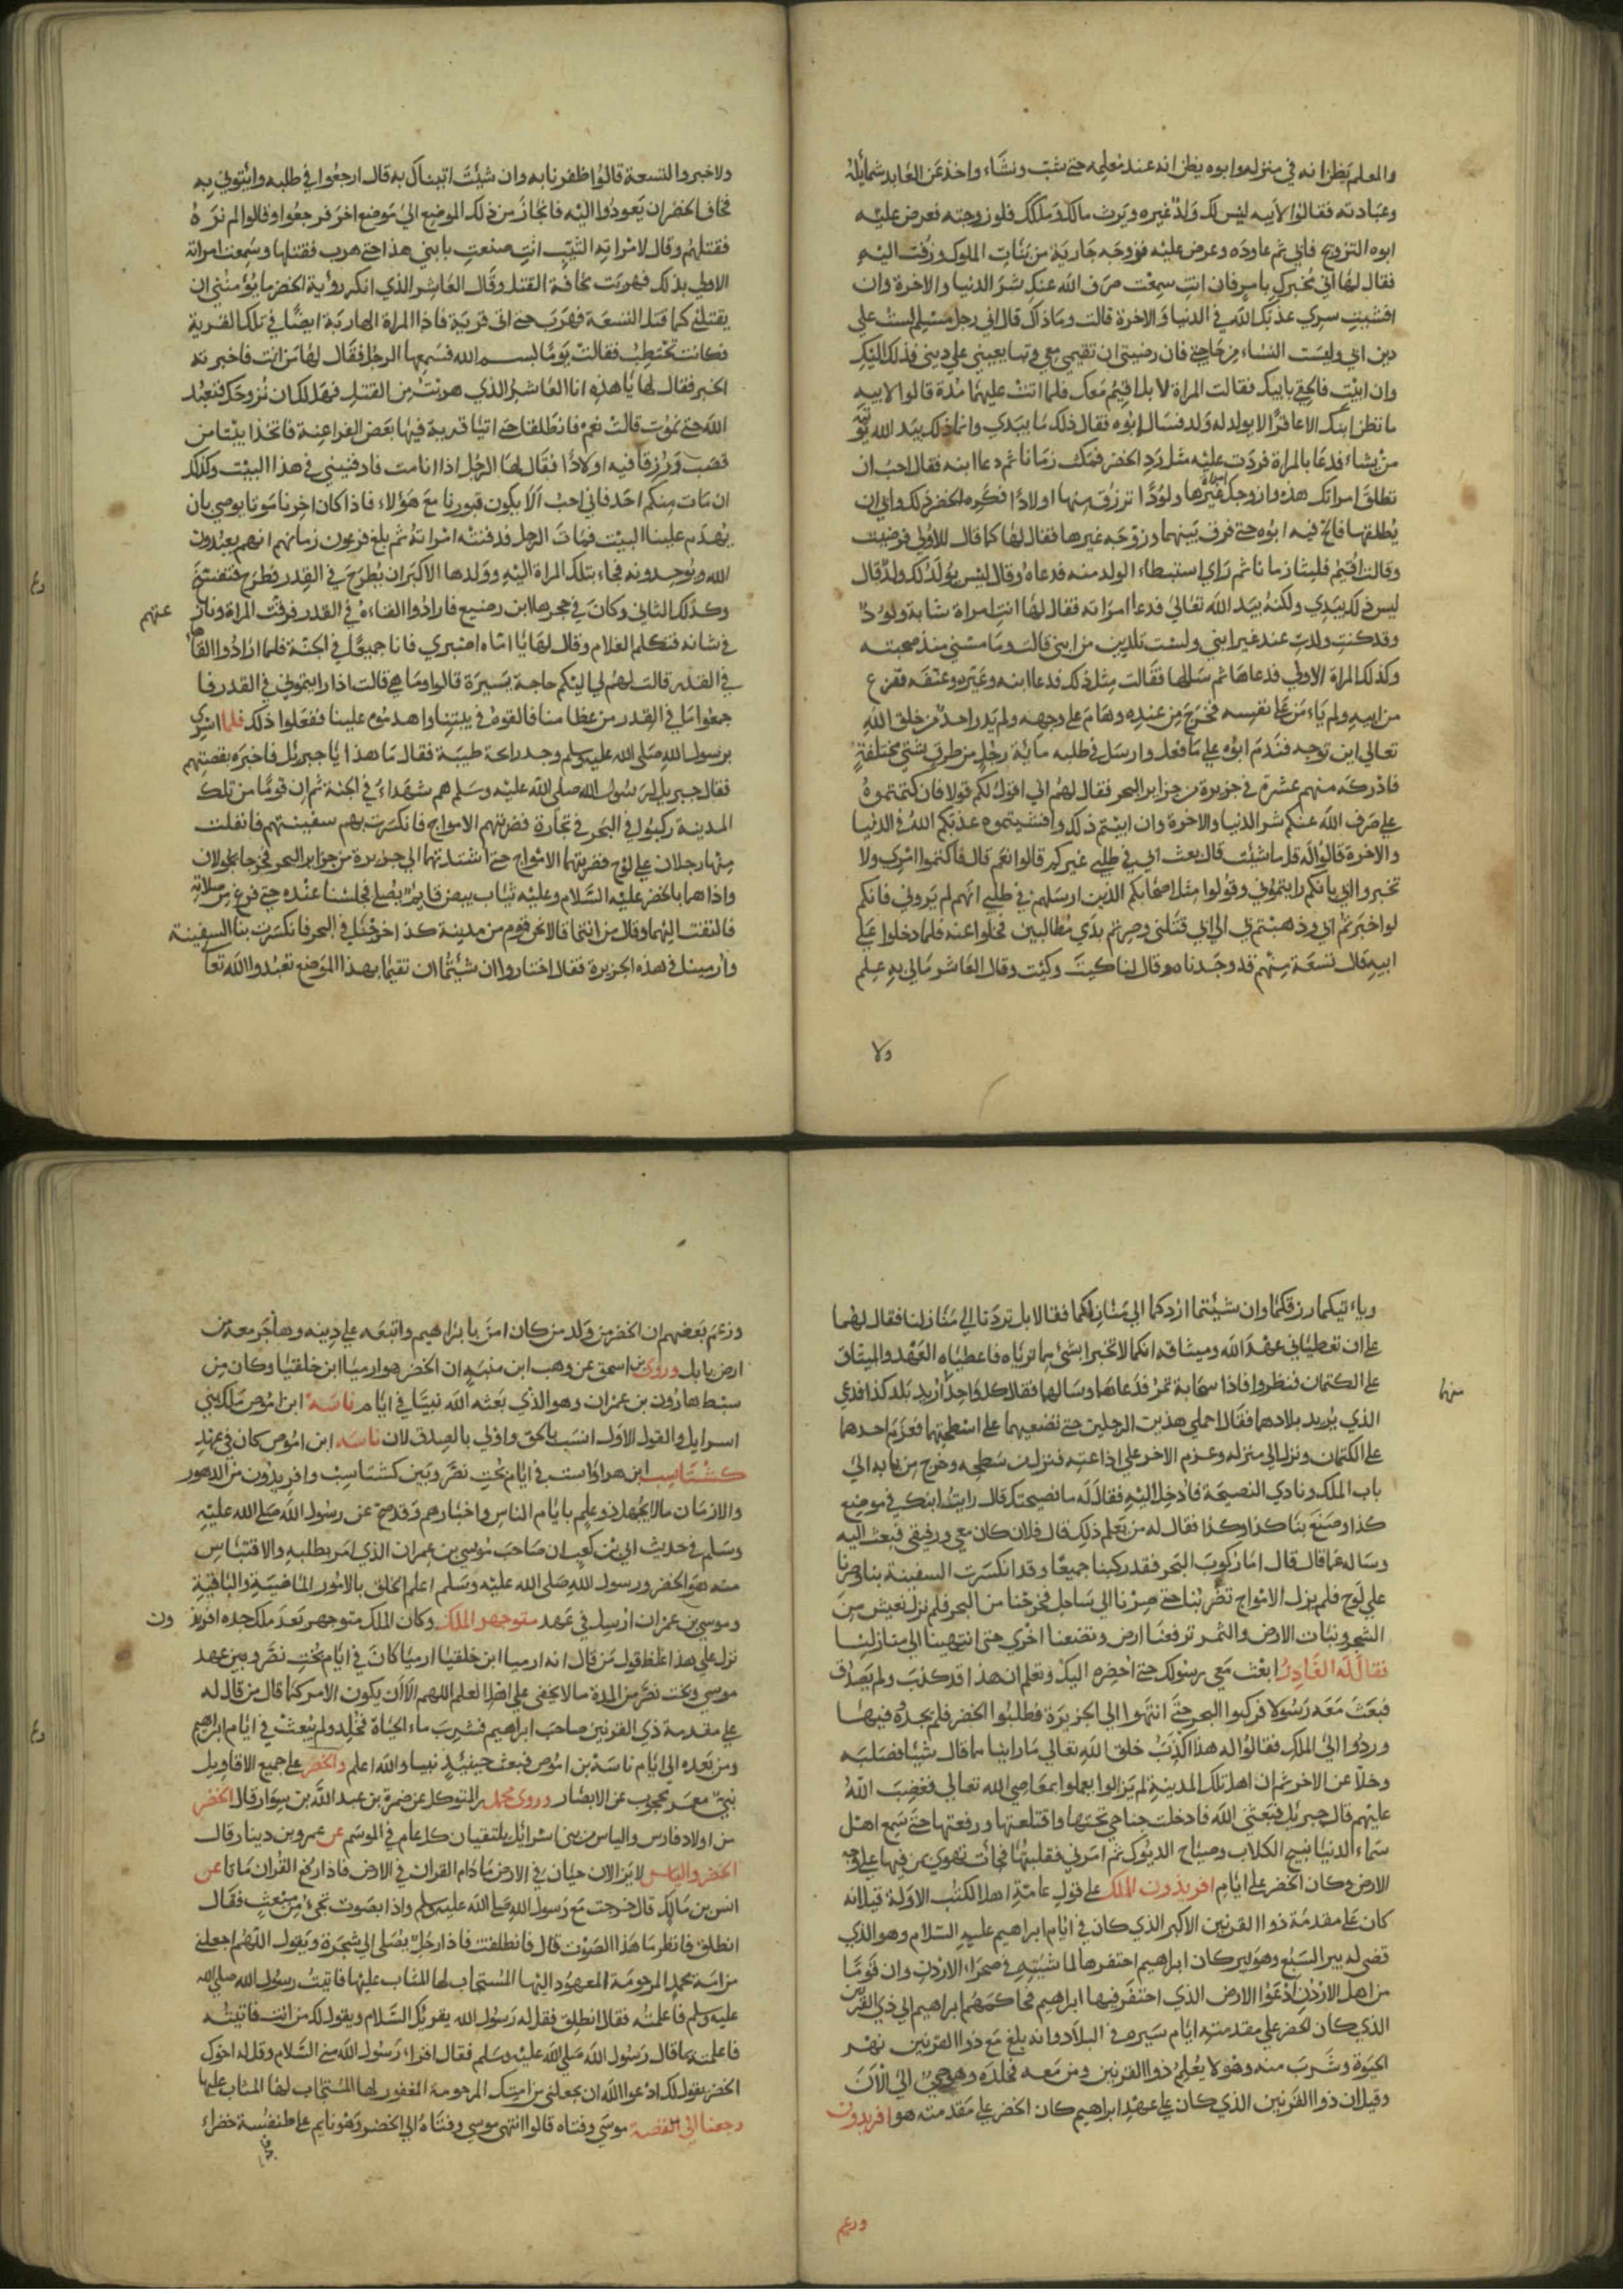 والمعلم يظن انه في منزله وابوه يظن انه عند معلمه حتى شب ونشاء واخذ عن العابد شمايله
وعبادته فقالوا لابيه ليس لك ولد غيره ويرث مالك وملكك فلو زوجته فعرض عليه
ابوه التزويج فابى ثم عاوده وعرض عليه فزوجه جارية من بنات الملوك وزفت اليه
فقال لها اني مخبرك باسر فان انت سمعت صرف الله عنك شر الدنيا والاخرة وان
افشيت سري عذبك الله في الدنيا والاخرة قالت وما ذاك قال اني رجل مسلم لست على
دين ابي وليست النساء من حاجتي فان رضيتي ان تقيمي معي وتتابعيني علي ديني فذلك اليك
وان ابيت فالحقي بابيك فقالت المراة لا بل اقيم معك فلما اتت عليهما مدة قالوا لابيه
ما نظن ابنك الا عاقرا لا يولد له ولد فسال ابوه فقال ذلك ما بيدي وانما ذلك بيد الله يؤتيه
من يشاء فدعا بالمراة فردت عليه مثل رد الخضر فمكث زمانا ثم دعا ابنه فقال احب ان
تطلق امراتك هذه وازوجك امراة غيرها ولودا ترزق منها اولادا فكره الخضر ذلك وابى ان
يطلقها فالح فيه ابوه حتى فرق بينهما وزوجه غيرها فقال لها كما قال للاولى فرضيت
وقالت اقيم فلبثا زمانا ثم راي استبطاء الولد منه فدعاه وقال ليس يولد لك ولد قال
ليس ذلك بيدي ولكنه بيد الله تعالى فدعا امراته فقال لها انت امراة شابة ولود
وقد كنت ولدت عند غير ابني ولست تلدين من ابني قالت وما مسني منذ صحبته
وكذلك المراة الاولى فدعاها ثم سالها فقالت مثل ذلك فدعا ابنه وعيره وعنفه ففزع
من ابيه ولم ياءمن على نفسه فخرج من عنده وهام على وجهه ولم يدر احد من خلق الله
تعالى اين توجه فندم ابوه على ما فعل وارسل في طلبه ماية رجل من طرق شتي مختلفة
فادركه منهم عشرة في جزيرة من جزاير البحر فقال لهم اني اقول لكم قولا فان كتمتموه
علي صرف الله عنكم شر الدنيا والاخرة وان ابيتم ذلك وافشيتموه عذبكم الله في الدنيا
والاخرة قالوا له قل ما شئت قال بعث ابي في طلبي غيركم قالوا نعم قال فاكتموا امري ولا
تخبروا ابي بانكم رايتموني وقولوا مثل اصحابكم الذين ارسلهم في طلبي انهم لم يروني فانكم
لو اخبرتم ابي وذهبتم بي الى ابي قتلني وصرتم بدمي مطالبين فخلوا عنه فلما دخلوا على
ابيه قال تسعة منهم قد وجدناه وقال لنا كيت وكيت وقال العاشر مالي به علم
ولا
ولا خبر والتسعة قالوا ظفرنا به وان شئت اتيناك به قال ارجعوا في طلبه وائتوني به
فخاف الخضر ان يعودوا اليه فانحاز من ذلك الموضع الى موضع اخر فرجعوا وقالوا لم نره
فقتلهم وقال لامراته الثيب انت صنعت بابني هذا حتى هرب فقتلها وسمعت امراته
الاولى بذلك فهربت مخافة القتل وقال العاشر الذي انكر رؤية الخضر ما يؤمنني ان
يقتلني كما قتل التسعة فهرب حتى اتى قرية فاذا المراة الهاربة ايضا في تلك القرية
فكانت تحتطب فقالت يوما بسم الله فسمعها الرجل فقال لها من انت فاخبرته
الخبر فقال لها يا هذه انا العاشر الذي هربت من القتل فهل لك ان نتزوجك فنعبد
الله حتى نموت قالت نعم فانطلقا حتى اتيا قرية فيها بعض الفراعنة فاتخذا بيتا من
قصب ورزقا فيه اولادا فقال لها الرجل اذا انا مت فادفنيني في هذا البيت وكذلك
ان مات منكم احد فاني احب الا يكون قبورنا مع هؤلاء فاذا كان اخرنا موتا يوصي بان
يهدم علينا البيت فمات الرجل فدفنته امراته ثم بلغ فرعون زمانهم انهم يعبدون
الله ويوحدونه فجاء بتلك المراة اليه وولدها الاكبر ان يطرح في القدر فطرح فتفسخ
وكذلك الثاني وكان في حجرها ابن رضيع فارادوا القاءه في القدر فرقت المراة
عنهم
في شانه فتكلم الغلام وقال لها يا اماه اصبري فانا جميعا في الجنة فلما ارادوا القاها
في القدر قالت لهم لي اليكم حاجة يسيرة قالوا وما هي قالت اذا رايتموني في القدر فا
جمعوا ما في القدر من عظامنا فالقوه في بيتنا واهدموه علينا ففعلوا ذلك فلما اسري
برسول الله صلى الله عليه وسلم وجد رائحة طيبة فقال ما هذا يا جبرئل فاخبره بقصتهم
فقال جبريل لرسول الله صلى الله عليه وسلم هم شهداء في الجنة ثم ان قوما من تلك
المدينة ركبوا في البحر في تجارة فضربتهم الامواج فانكسرت بهم سفينتهم فانفلت
منها رجلان علي لوح فضربتهما الامواج حتى اسندتهما الى جزيرة من جزاير البحر فخرجا يجولان
واذا هما بالخضر عليه السلام وعليه ثياب بيض قايم يصلي فجلسا عنده حتى فرغ من صلاته
فالتفت اليهما وقال من انتما قالا نحن قوم من مدينة كذا خرجنا في البحر فانكسرت بنا السفينة
وارمينا في هذه الجزيرة فقال اختاروا ان شيئتما ان تقيما بهذا الموضع تعبدوا الله تعا
وياءتيكما رزقكما وان شيئتما اردكما الى منازلكما فقالا بل تردنا الى منازلنا فقال لهما
على ان تعطياني عهد الله وميثاقه انكما لا تخبرا بشئ مما ترياه فاعطياه العهد والميثاق
على الكتمان فنظروا فاذا سحابة تمر فدعاها وسالها فقالا كل واحد اريد بلد كذا فدعي
منها
الذي يريد بلادهما فقال احملي هذين الرجلين حتى تضعيهما على اسطحتهما فعزم احدهما
على الكتمان ونزل الى منزله وعزم الاخر على اذاعته فنزل من سطحه وخرج من بابه الى
باب الملك ونادي النصيحة فادخل اليه فقال له ما نصيحتك قال رايت ابنك في موضع
كذا وصنع بنا كذا وكذا فقال له من يعلم ذلك قال فلان كان معي ورفيقي فبعث اليه
وساله عما قال قال اما ركوب البحر فقد ركبنا جميعا وقد انكسرت السفينة بنا وصرنا
علي لوح فلم يزل الامواج تضربنا حتى صرنا الى ساحل فخرجنا من البحر فلم نزل نعيش من
الشجر ونبات الارض والثمر ترفعنا ارض وتضعنا اخرى حتى انتهينا الى منازلنا
فقال له الغادر ابعث معي رسولك حتى احضره اليك وتعلم ان هذا قد كذب ولم يصدق
فبعث معه رسولا فركبوا البحر حتى انتهوا الى الجزيرة فطلبوا الخضر فلم يجدوه فيها
وردوا الى الملك فقالوا له هذا اكذب خلق الله تعالى ما راينا مما قال شيئا فصلبه
وخلا عن الاخر ثم ان اهل تلك المدينة لم يزالوا يعملوا بمعاصي الله تعالى فغضب الله
عليهم قال جبرئل فبعثني الله فادخلت جناحي تحتها واقتلعتها ورفعتها حتى سمع اهل
سماء الدنيا نبيح الكلاب وصياح الديوك ثم امرني فقلبتها فجات تهوي بمن فيها على وجه
الارض وكان الخضر على ايام افريذون الملك على قول عامة اهل الكتب الاولة قيل انه
كان على مقدمة ذو القرنين الاكبر الذي كان في ايام ابراهيم عليه السلام وهو الذي
قضى له بير السبع وهو بير كان ابراهيم احتفرها لماشيته في صحراء الاردن وان قوما
من اهل الاردن ادعوا الارض الذي احتفر فيها ابراهيم فحاكمهم ابراهيم الى ذي القرنين
الذي كان الخضر على مقدمته ايام سيره في البلاد وانه بلغ مع ذو القرنين نهر
الحيوة وشرب منه وهو لا يعلم ذو القرنين ومن معه فخلده وهو حي الى الان
وقيل ان ذو القرنين الذي كان على عهد ابراهيم كان الخضر على مقدمته هو افريدون
وزعم
وزعم بعضهم ان الخضر من ولد من كان امن بابراهيم واتبعه علي دينه وهاجر معه من
ارض بابل وروى بن اسحق عن وهب ابن منبه ان الخضر هو ارميا ابن خلقيا وكان من
سبط هارون بن عمران وهو الذي بعثه الله نبيا في ايام ناسة ابن اموص ملك بني
اسرايل والقول الاول انسب بالحق واولى بالصدق لان ناسه ابن اموص كان في عهد
كشتاسب ابن هراواست في ايام بخت نصر وبين كشتاسب وافريذون من الدهور
والازمان ما لا يجهله ذو علم بايام الناس واخبارهم وقد صح عن رسول الله صلى الله عليه
وسلم في حديث ابي بن كعب ان صاحب موسى بن عمران الذي امر بطلبه والاقتباس
منه هو الخضر ورسول الله صلى الله عليه وسلم اعلم الخلق بالامور الماضية والباقية
وموسى بن عمران ارسل في عهد منوجهر الملك وكان الملك منوجهر بعد ملك جده افريذ
ون
نزل علي هذا غلط قول من قال انه ارميا ابن خلقيا ارميا كان في ايام بخت نصر وبين عهد
موسى وبخت نصر من المدة ما لا يخفى علي اهل العلم اللهم الا ان يكون الامر كما قال من قال له
علي مقدمة ذي القرنين صاحب ابراهيم فشرب ماء الحياة فخلد ولم يبعث في ايام ابراهيم
ومن بعده الى ايام ناسة بن اموص فبعث حينيذ نبيا والله اعلم والخضر على جميع الاقاويل
نبي معمر محجوب عن الابصار وروى محمد بن المتوكل عن ضمرة بن عبد الله بن سوار قال الخضر
من اولاد فارس والياس من بني اسرائل يلتقيان كل عام في الموسم عن عمرو بن دينار قال
الخضر والياس لا يزالان حيان في الارض ما دام القران في الارض فاذا رفع القران ماتا عن
انس بن مالك قال خرجت مع رسول الله صلى الله عليه وسلم واذا بصوت تجيء من فقال
انطلق فانظر ما هذا الصوت قال فانطلقت فاذا رجل يصلي الى شجرة ويقول اللهم اجعلني
من امة محمد المرحومة المعهود اليها المستجاب لها المثاب عليها فاتيت رسول الله صلى الله
عليه وسلم فاعلمته فقال انطلق فقل له رسول الله يقريك السلام ويقول لك من انت فاتيته
فاعلمته بما قال رسول الله صلى الله عليه وسلم فقال اقراء رسول الله مني السلام وقل له اخوك
الخضر يقول لك ادعوا الله ان يجعلني من امتك المرحومة المغفور لها المستجاب لها المثاب عليها
رجعنا الى القصة موسى وفتاه قالوا انتهى موسى وفتاه الى الخضر وهو نايم على طنفسة خضراء